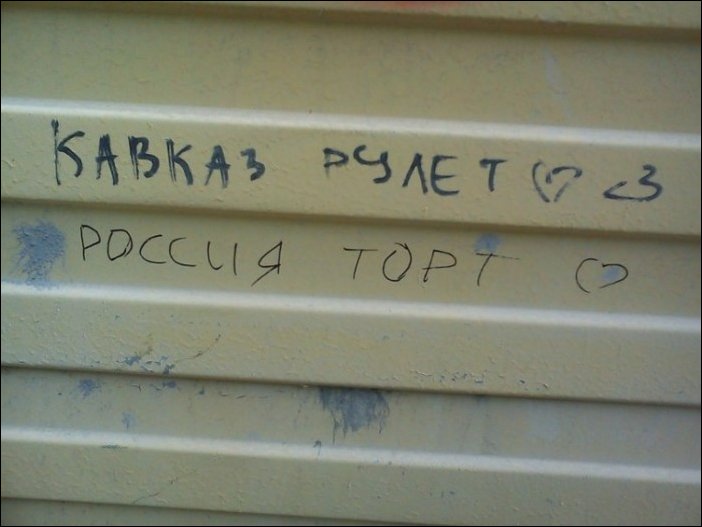 КАВКАЗ РУЛЕТ ♡ <3
РОССИЯ ТОРТ ♡